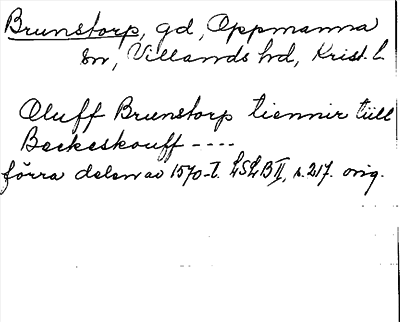 Brunstorp, gd, Oppmanna
sn, Villands hd, Krist. l.
Oluff Brunstorp tiennir tiill
Beckeskouff ----
förra delen av 1570-t. LSLB II, s. 217. orig.